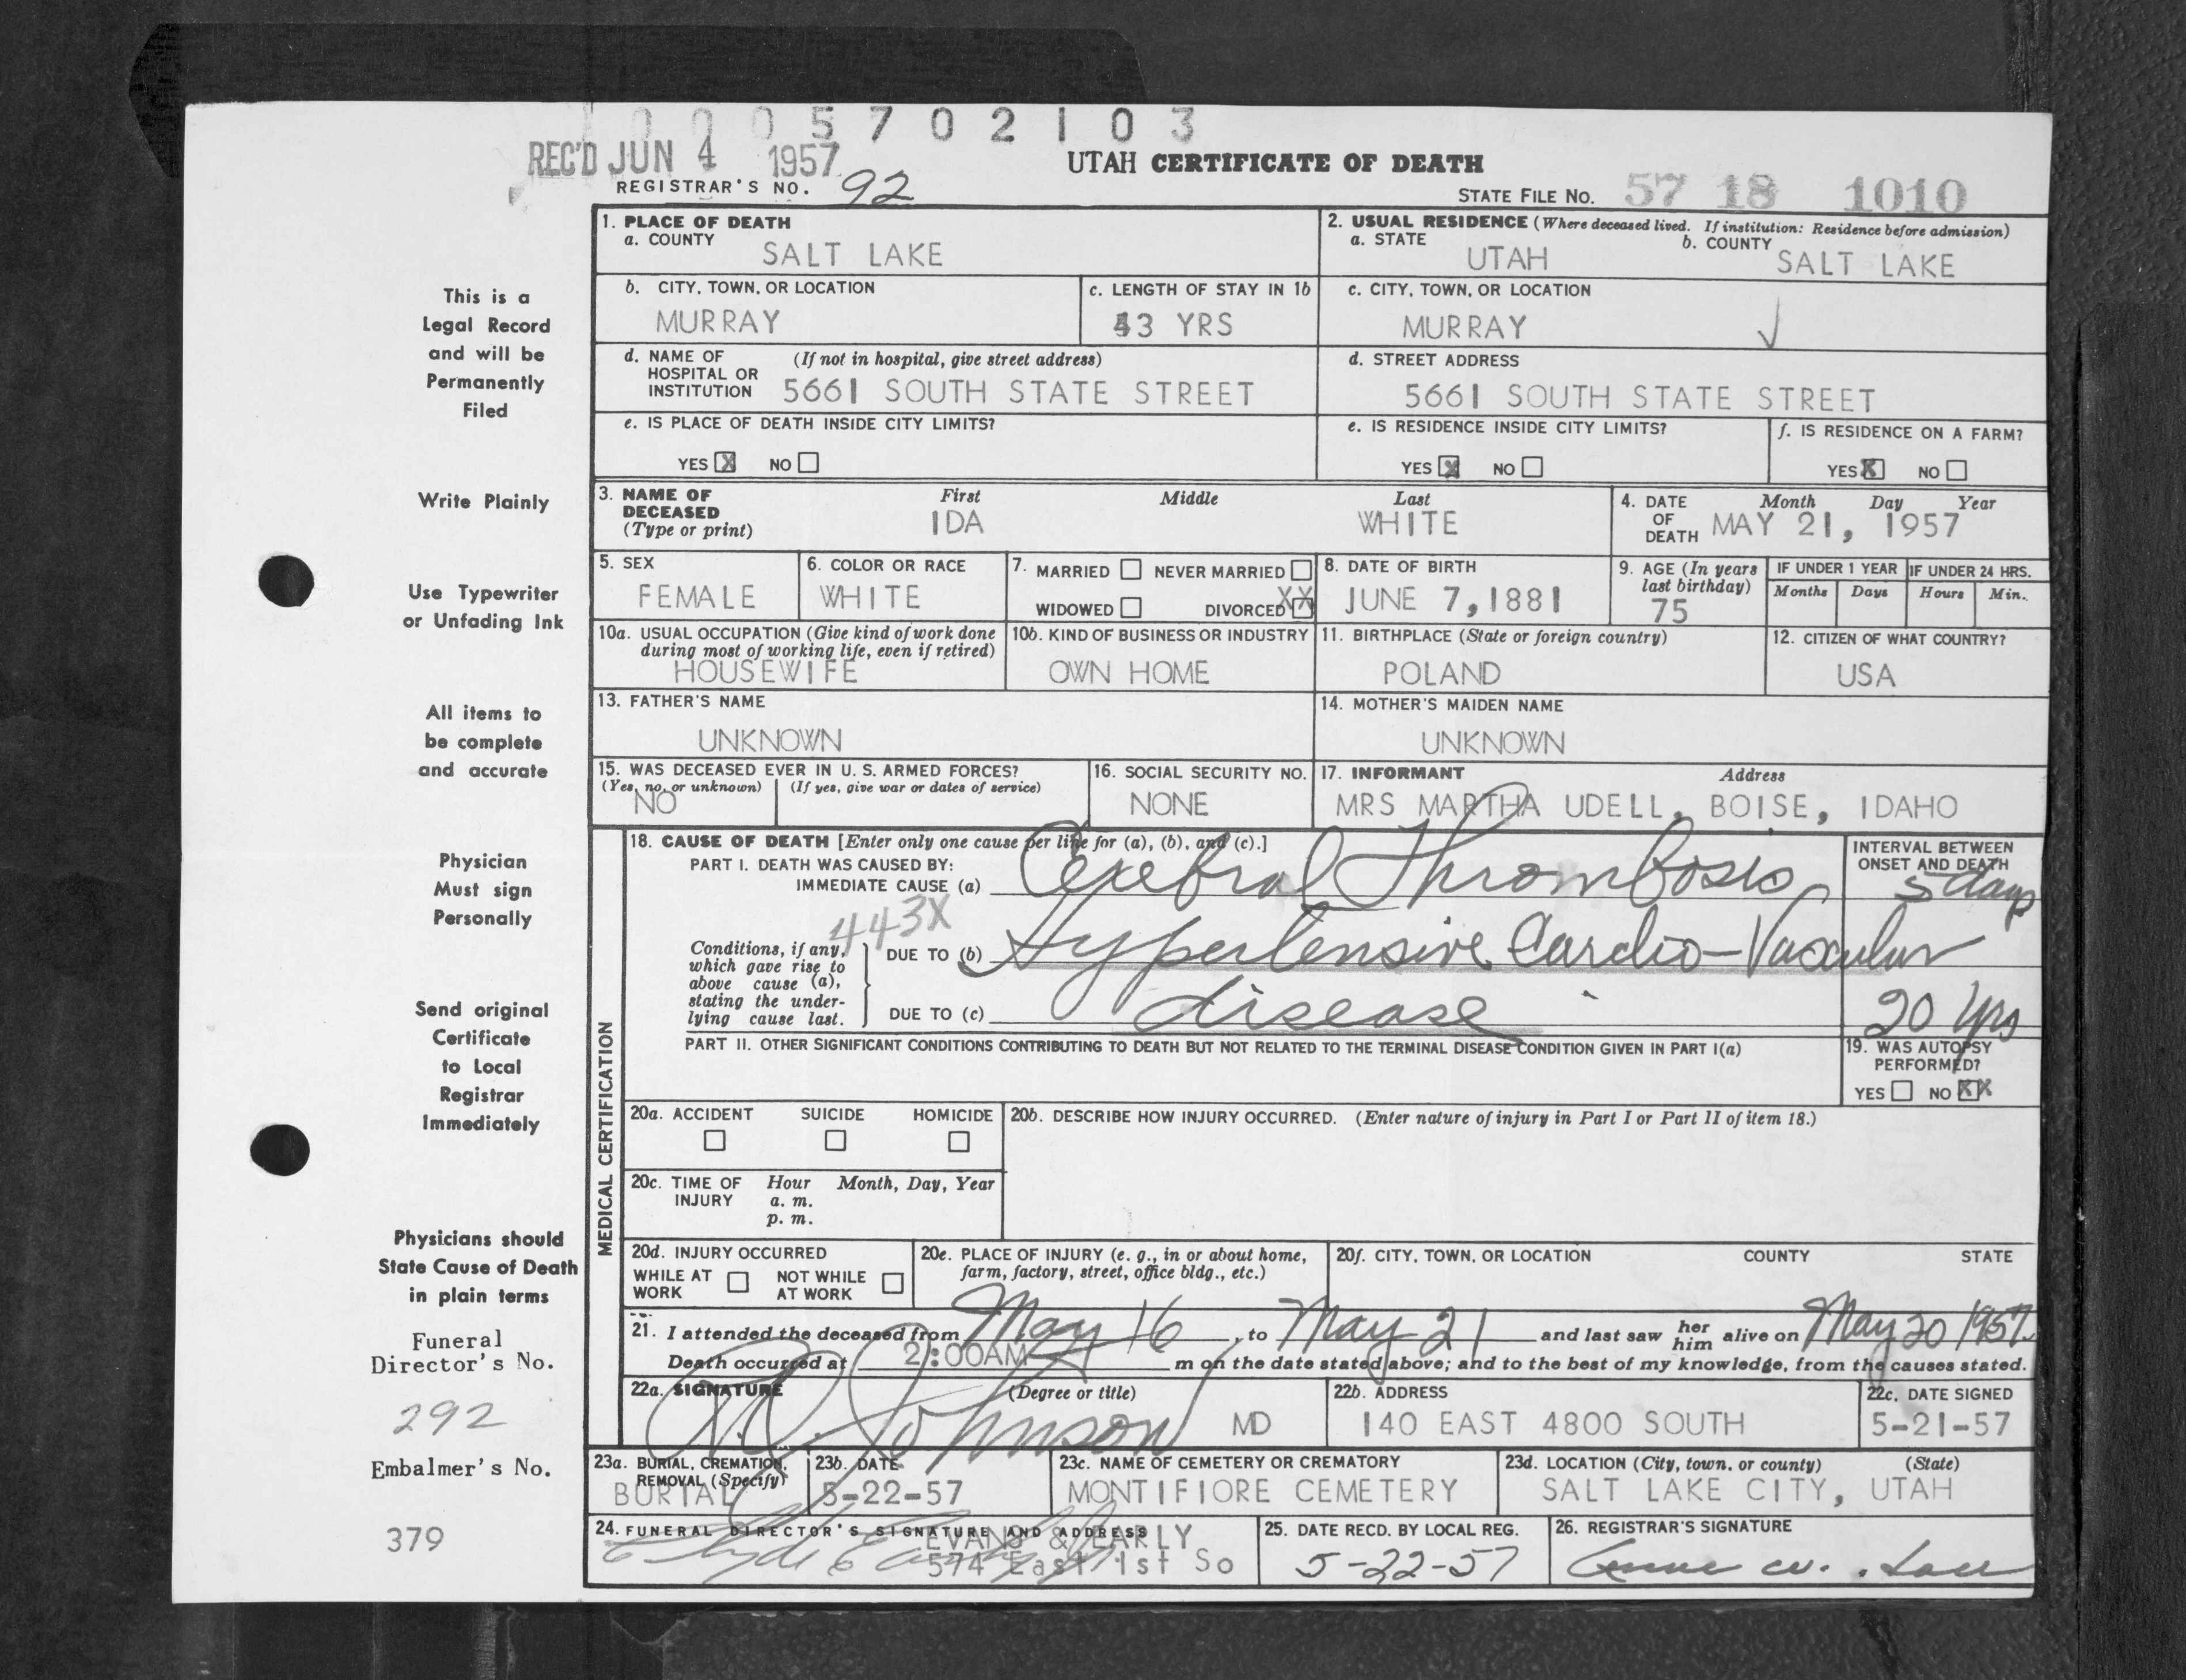 0005702103
REC'D JUN 4 1957
UTAH CERTIFICATE OF DEATH
REGISTRAR'S NO. 92
STATE FILE NO. 57 18 1010
This is a
Legal Record
and will be
Permanently
Filed
Write Plainly
Use Typewriter
or Unfading Ink
All items to
be complete
and accurate
Physician
Must sign
Personally
Send original
Certificate
to Local
Registrar
Immediately
Physicians should
State Cause of Death
in plain terms
Funeral
Director's No.
292
Embalmer's No.
379
1. PLACE OF DEATH
a. COUNTY
SALT LAKE
2. USUAL RESIDENCE (Where deceased lived. If institution: Residence before admission)
a. STATE
UTAH
b. COUNTY
SALT LAKE
b. CITY, TOWN, OR LOCATION
MURRAY
c. LENGTH OF STAY IN 1b
43 YRS
c. CITY, TOWN, OR LOCATION
MURRAY
d. NAME OF HOSPITAL OR INSTITUTION
(If not in hospital, give street address)
5661 SOUTH STATE STREET
d. STREET ADDRESS
5661 SOUTH STATE STREET
e. IS PLACE OF DEATH INSIDE CITY LIMITS?
YES X NO
e. IS RESIDENCE INSIDE CITY LIMITS?
YES X NO
f. IS RESIDENCE ON A FARM?
YES X NO
3. NAME OF DECEASED (Type or print)
First Middle Last
IDA WHITE
4. DATE OF DEATH
Month Day Year
MAY 21, 1957
5. SEX
FEMALE
6. COLOR OR RACE
WHITE
7. MARRIED NEVER MARRIED
WIDOWED DIVORCED XX
8. DATE OF BIRTH
JUNE 7, 1881
9. AGE (In years last birthday)
75
IF UNDER 1 YEAR
Months Days
IF UNDER 24 HRS.
Hours Min.
10a. USUAL OCCUPATION (Give kind of work done
during most of working life, even if retired)
HOUSEWIFE
10b. KIND OF BUSINESS OR INDUSTRY
OWN HOME
11. BIRTHPLACE (State or foreign country)
POLAND
12. CITIZEN OF WHAT COUNTRY?
USA
13. FATHER'S NAME
UNKNOWN
14. MOTHER'S MAIDEN NAME
UNKNOWN
15. WAS DECEASED EVER IN U. S. ARMED FORCES?
(Yes, no, or unknown) (If yes, give war or dates of service)
NO
16. SOCIAL SECURITY NO.
NONE
17. INFORMANT Address
MRS MARTHA UDELL, BOISE, IDAHO
MEDICAL CERTIFICATION
18. CAUSE OF DEATH [Enter only one cause per line for (a), (b), and (c).]
PART I. DEATH WAS CAUSED BY:
IMMEDIATE CAUSE (a) Cerebral Thrombosis
INTERVAL BETWEEN
ONSET AND DEATH
5 days
443X
Conditions, if any,
which gave rise to
above cause (a),
stating the under-
lying cause last.
DUE TO (b) Hypertensive Cardio-Vascular
DUE TO (c) disease
20 yrs
PART II. OTHER SIGNIFICANT CONDITIONS CONTRIBUTING TO DEATH BUT NOT RELATED TO THE TERMINAL DISEASE CONDITION GIVEN IN PART I(a)
19. WAS AUTOPSY
PERFORMED?
YES NO XX
20a. ACCIDENT SUICIDE HOMICIDE
20b. DESCRIBE HOW INJURY OCCURRED. (Enter nature of injury in Part I or Part II of item 18.)
20c. TIME OF INJURY
Hour Month, Day, Year
a. m.
p. m.
20d. INJURY OCCURRED
WHILE AT WORK NOT WHILE AT WORK
20e. PLACE OF INJURY (e. g., in or about home,
farm, factory, street, office bldg., etc.)
20f. CITY, TOWN, OR LOCATION COUNTY STATE
21. I attended the deceased from May 16, to May 21 and last saw her him alive on May 20 1957.
Death occurred at 2:00AM m on the date stated above; and to the best of my knowledge, from the causes stated.
22a. SIGNATURE (Degree or title)
Johnson MD
22b. ADDRESS
140 EAST 4800 SOUTH
22c. DATE SIGNED
5-21-57
23a. BURIAL, CREMATION,
REMOVAL (Specify)
BURIAL
23b. DATE
5-22-57
23c. NAME OF CEMETERY OR CREMATORY
MONTIFIORE CEMETERY
23d. LOCATION (City, town, or county) (State)
SALT LAKE CITY, UTAH
24. FUNERAL DIRECTOR'S SIGNATURE AND ADDRESS
EVANS & EARLY
574 East 1st So
25. DATE RECD. BY LOCAL REG.
5-22-57
26. REGISTRAR'S SIGNATURE